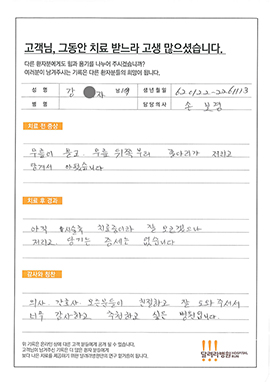 고객님, 그동안 치료 받느라 고생 많으셨습니다.
다른 환자분에게도 힘과 용기를 나누어 주시겠습니까?
여러분이 남겨주시는 기록은 다른 환자분들의 희망이 됩니다.
성 명 강 자 남/여 생년월일
병 명 담당의사 손 보경
치료 전 증상
무릎이 붓고 무릎 뒤쪽부터 종아리가 저리고
당겨서 아팠습니다
치료 후 경과
아직 치료중이라 잘 모르겠으나
저리고 당기는 증세는 없습니다
감사와 칭찬
의사 간호사 모든분들이 친절하고 잘 도와주셔서
너무 감사하고 추천하고 싶은 병원입니다.
위 기록은 온라인 상에 다른 고객 분들에게 공개 될 수 있습니다.
고객님이 남겨주신 기록은 더 많은 환자 분들에게
보다 나은 치료를 제공하기 위한 달려라병원만의 연구 참가원이 됩니다.
달려라병원 HOSPITAL RUN